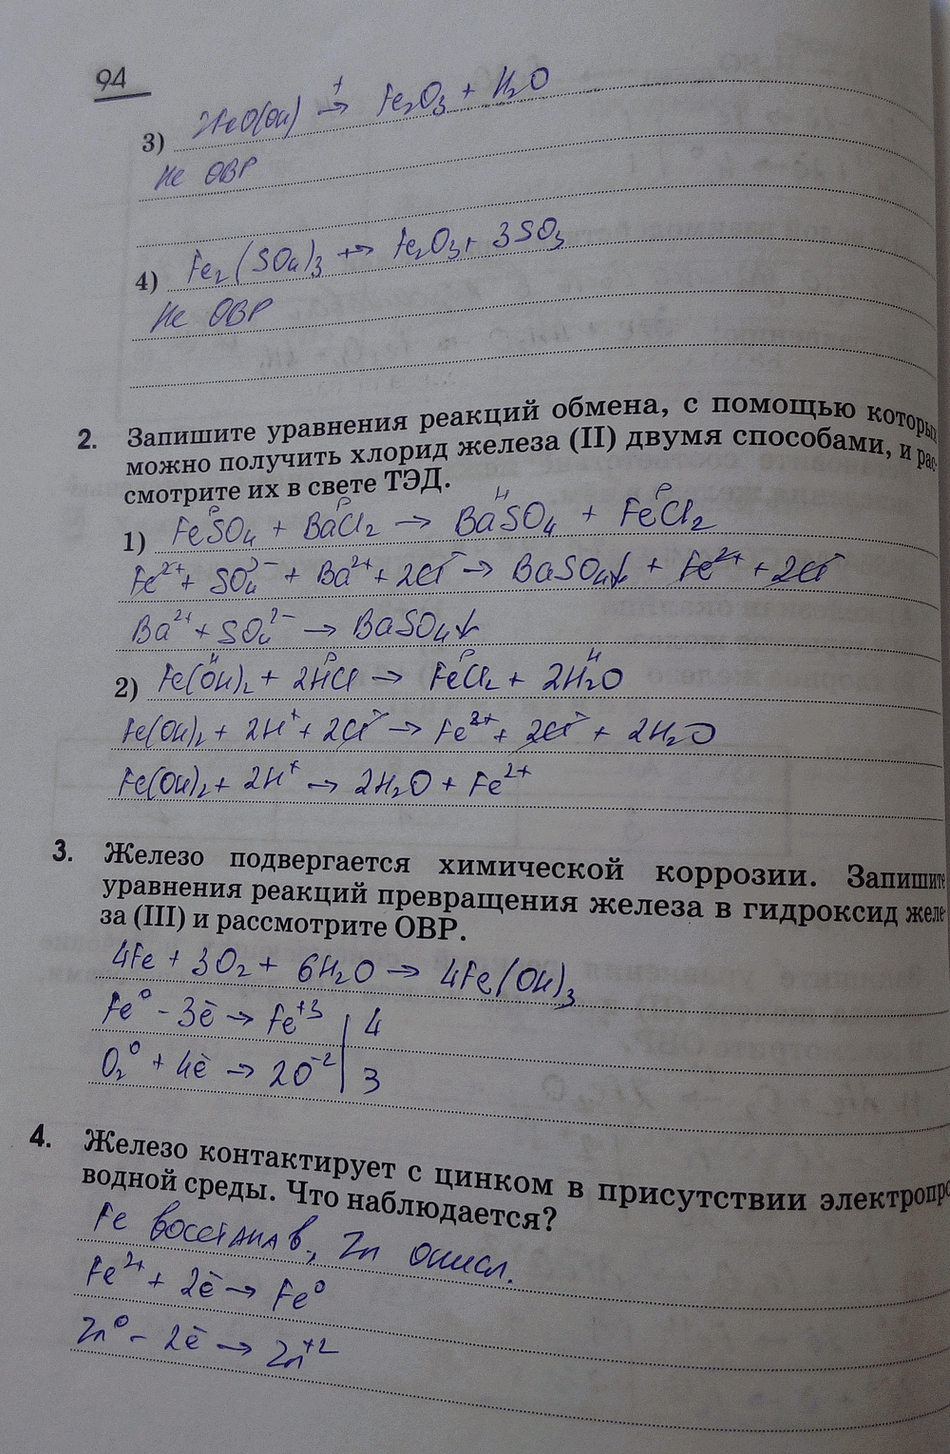 94
3) 2FeO(OH) →t Fe₂O₃ + H₂O
Не ОВР
4) Fe₂(SO₄)₃ t→ Fe₂O₃ + 3SO₃
Не ОВР
2. Запишите уравнения реакций обмена, с помощью которых
можно получить хлорид железа (II) двумя способами, и рас-
смотрите их в свете ТЭД.
Р Р Н Р
1) FeSO₄ + BaCl₂ → BaSO₄ + FeCl₂
Fe²⁺ + SO₄²⁻ + Ba²⁺ + 2Cl⁻ → BaSO₄↓ + Fe²⁺ + 2Cl⁻
Ba²⁺ + SO₄²⁻ → BaSO₄↓
Н Р Р Н
2) Fe(OH)₂ + 2HCl → FeCl₂ + 2H₂O
Fe(OH)₂ + 2H⁺ + 2Cl⁻ → Fe²⁺ + 2Cl⁻ + 2H₂O
Fe(OH)₂ + 2H⁺ → 2H₂O + Fe²⁺
3. Железо подвергается химической коррозии. Запишите
уравнения реакций превращения железа в гидроксид желе-
за (III) и рассмотрите ОВР.
4Fe + 3O₂ + 6H₂O → 4Fe(OH)₃
Fe⁰ - 3ē → Fe⁺³ | 4
O₂⁰ + 4ē → 2O⁻² | 3
4. Железо контактирует с цинком в присутствии электропро
водной среды. Что наблюдается?
Fe восстанав, Zn окисл.
Fe²⁺ + 2ē → Fe⁰
Zn⁰ - 2ē → Zn⁺²